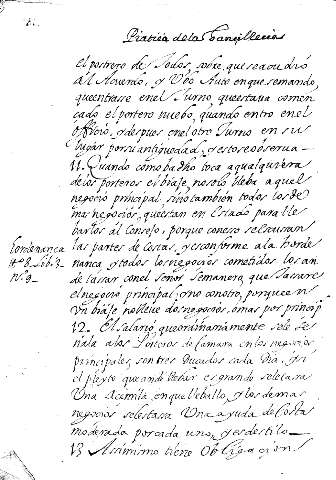 Platica de la Chançilleria
el postrero de todos, sobre, que se acudio
al Acuerdo, y Vbo Auto en que se mando,
que entrasse en el Turno, que estava comen
cado el portero nuebo, quando entro en el
offiçio, y despues en el otro Turno en su
lugar por su antiguedad, y esto se observa—
11. Quando como ba dho toca a qualquiera
de los porteros el biaje, no solo lleba a quel
negoçio prinçipal, sino tambien todos los de
mas negoçios, que estan en Estado para lle
barlos al Consejo, porque con eso se escusan
las partes de Costas, y es conforme a la horde
nança y todos los negoçios cometidos los an
de tasar con el señor Semanero, que tasare
el negoçio prinçipal, y no con otro, porque en
Vn biaje no lleve dos negoçios, o mas por prinçip.
hordenança
tto 8. lib. 3.
nº 9.
12. El salario, que ordinariamente se le Se
ñala a los Porteros de Camara en los negoçios
prinçipales, son tres Ducados cada Dia, y si
el pleyto que an de llebar es grande se le tasa
Vna Acemila, en que llebarlo, y los demas
negoçios se les tasa Vna ayuda de Costa
moderada por cada uno, y es de stilo—
13 Assimismo tiene Obligaçion